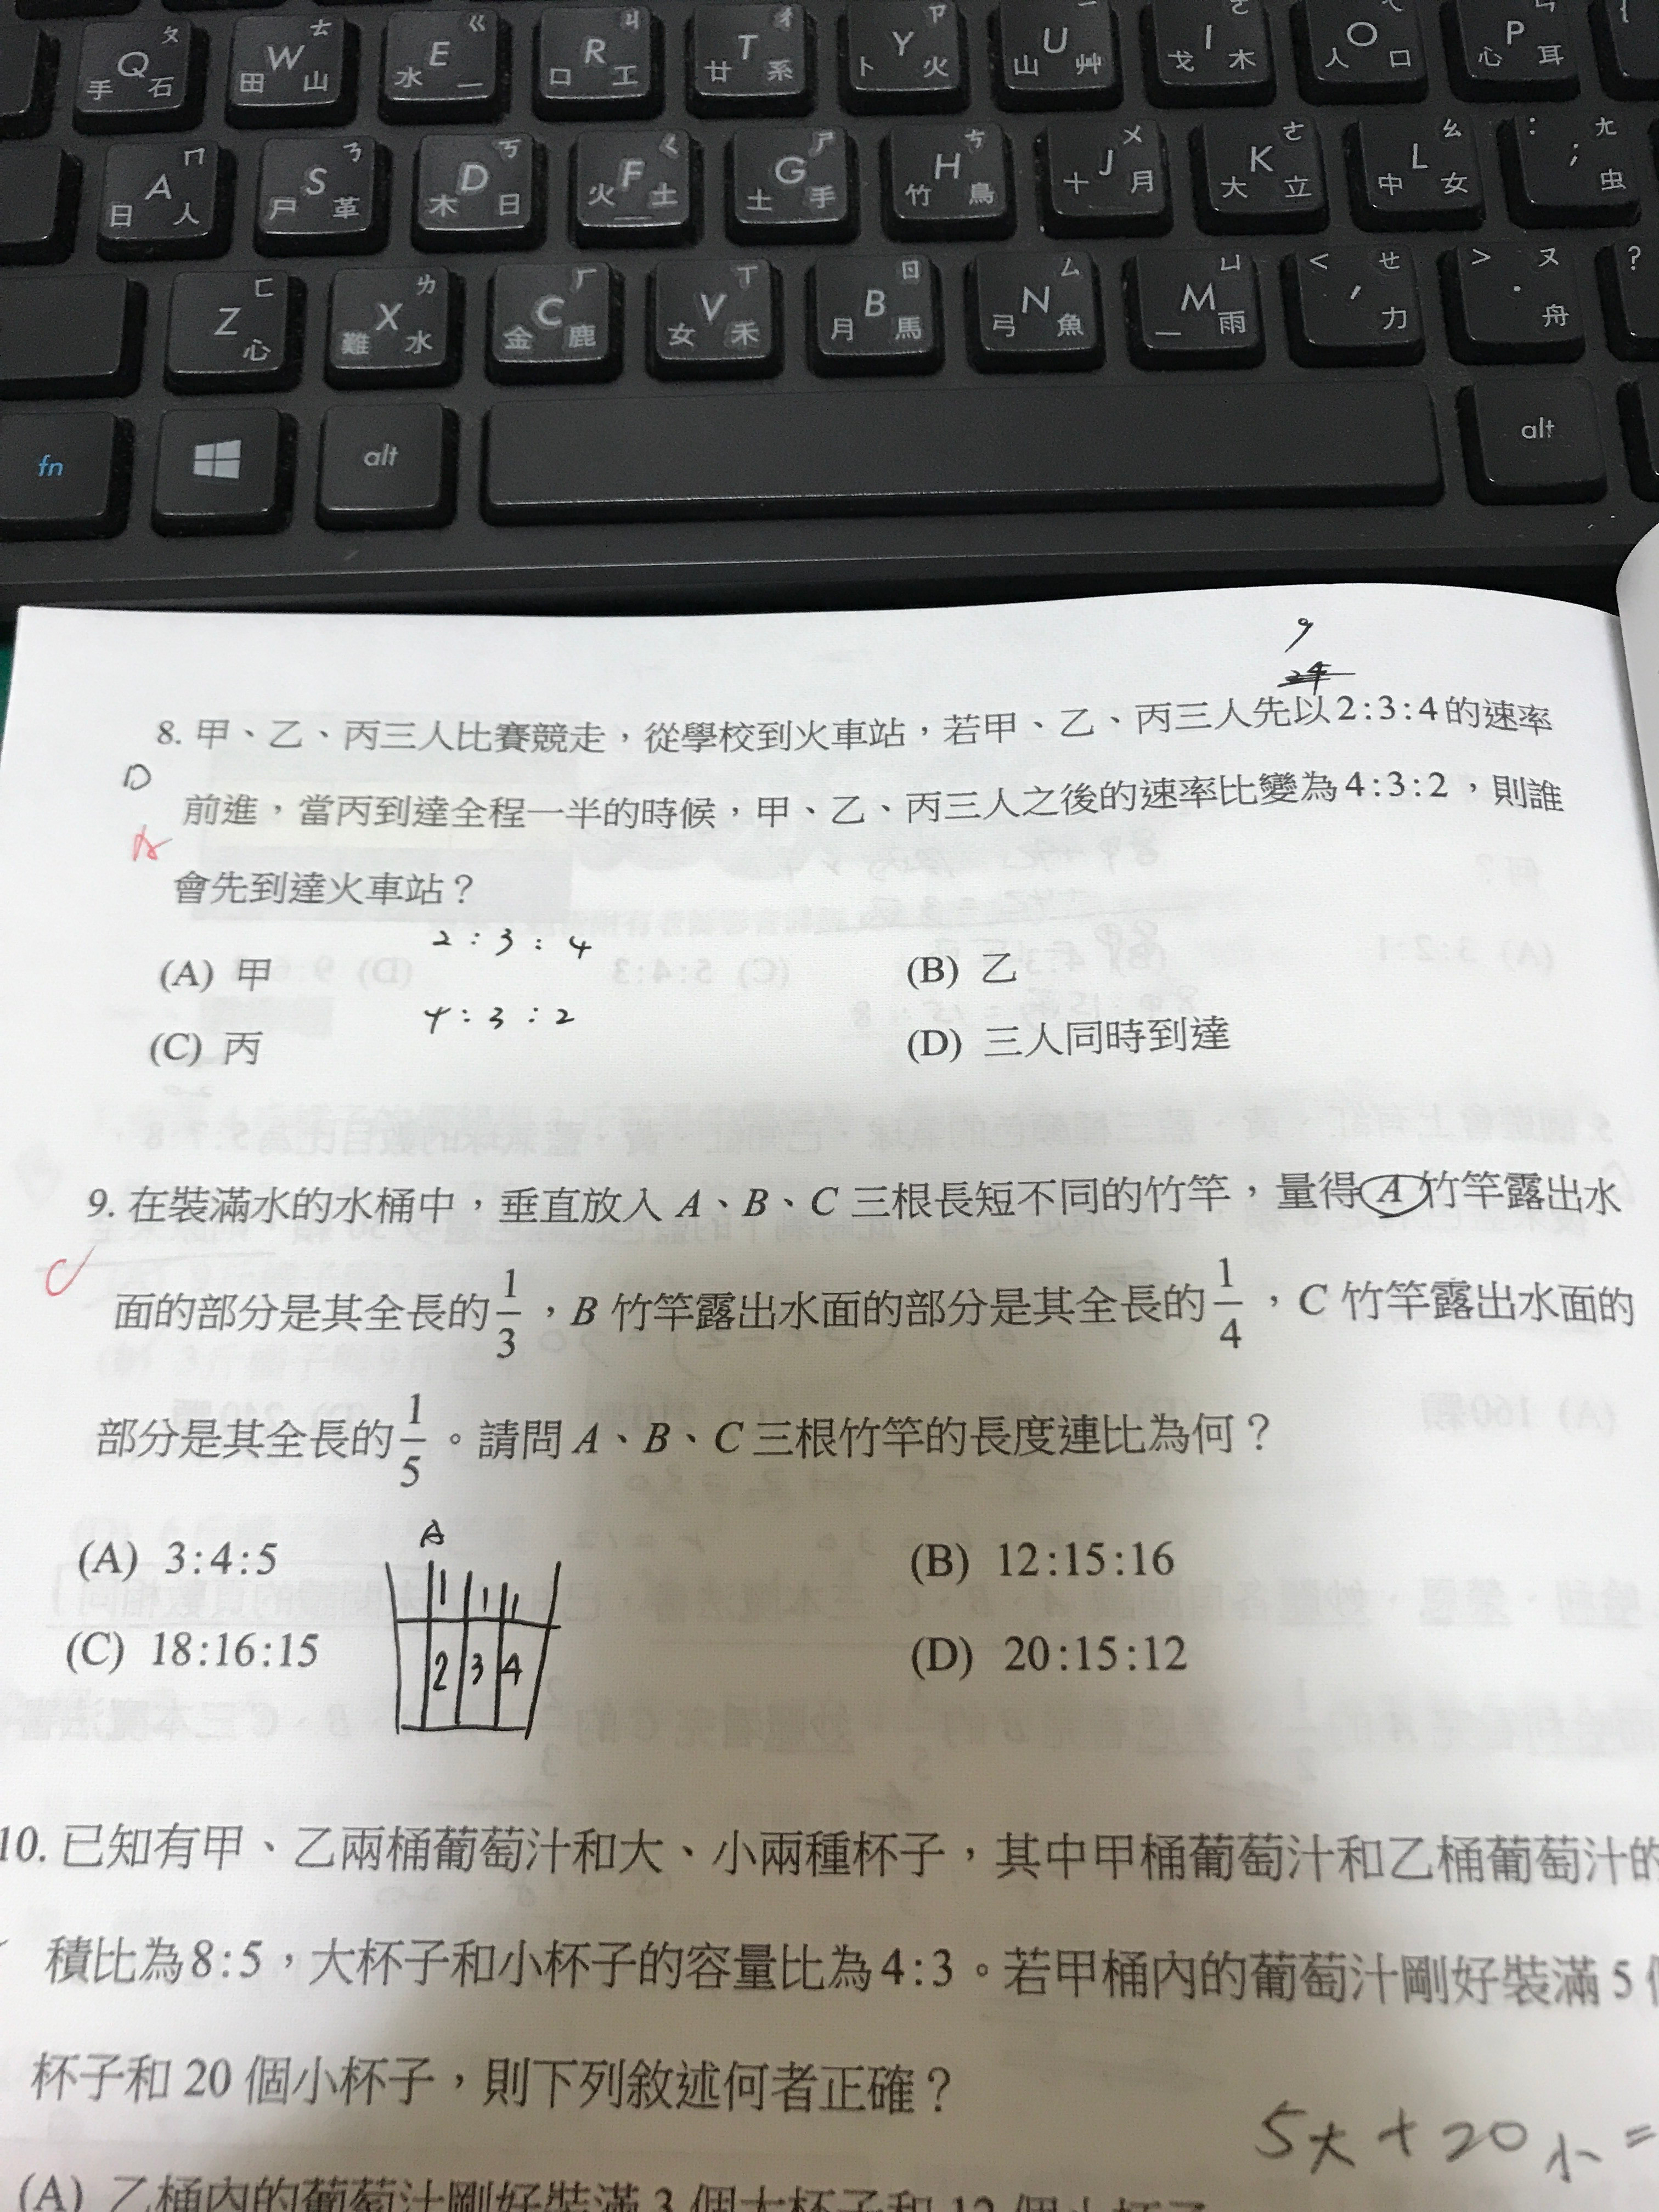 Q 手 ㄆ 石 W 田 ㄊ 山 E 水 ㄍ 一 R 口 ㄐ 工 T 廿 ㄔ 糸 Y 卜 ㄗ 火 U 山 ㄧ 艸 I 戈 ㄛ 木 O 人 ㄟ 口 P 心 ㄣ 耳 {
A 日 ㄇ 人 S 尸 ㄋ 革 D 木 ㄎ 日 F 火 ㄑ 土 G 土 ㄕ 手 H 竹 ㄘ 鳥 J 十 ㄨ 月 K 大 ㄜ 立 L 中 ㄠ 女 : ; ㄤ 虫
Z ㄈ 心 X 難 ㄌ 水 C 金 ㄏ 鹿 V 女 ㄒ 禾 B 月 ㄖ 馬 N 弓 ㄙ 魚 M 一 ㄩ 雨 < , ㄝ 力 > . ㄡ 舟 ?
fn alt alt
9
8. 甲、乙、丙三人比賽競走，從學校到火車站，若甲、乙、丙三人先以2:3:4的速率
D
前進，當丙到達全程一半的時候，甲、乙、丙三人之後的速率比變為4:3:2，則誰
A
會先到達火車站？
2:3:4
(A) 甲 (B) 乙
4:3:2
(C) 丙 (D) 三人同時到達
9. 在裝滿水的水桶中，垂直放入 A、B、C 三根長短不同的竹竿，量得 A 竹竿露出水
面的部分是其全長的1/3，B 竹竿露出水面的部分是其全長的1/4，C 竹竿露出水面的
部分是其全長的1/5。請問 A、B、C 三根竹竿的長度連比為何？
A
(A) 3:4:5 (B) 12:15:16
1 1 1
(C) 18:16:15 (D) 20:15:12
2 3 4
10. 已知有甲、乙兩桶葡萄汁和大、小兩種杯子，其中甲桶葡萄汁和乙桶葡萄汁的
積比為8:5，大杯子和小杯子的容量比為4:3。若甲桶內的葡萄汁剛好裝滿 5
杯子和 20 個小杯子，則下列敘述何者正確？
5大+20小=
(A) 乙桶內的葡萄汁剛好裝滿 3 個大杯子和 12 個小杯子